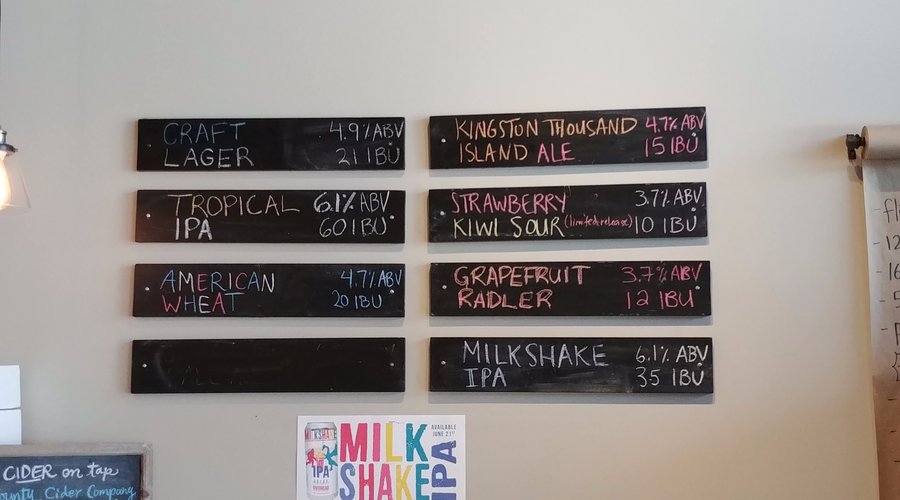 CRAFT 4.9% ABV
LAGER 21 IBU
TROPICAL 6.1% ABV
IPA 60 IBU
AMERICAN 4.7% ABV
WHEAT 20 IBU
KINGSTON THOUSAND 4.7% ABV
ISLAND ALE 15 IBU
STRAWBERRY 3.7% ABV
KIWI SOUR (limited release) 10 IBU
GRAPEFRUIT 3.7% ABV
RADLER 12 IBU
MILKSHAKE 6.1% ABV
IPA 35 IBU
CIDER on tap
ounty Cider Company
MILKSHAKE
IPA
MILK
SHAKE
IPA
AVAILABLE
JUNE 21ST
- 12
- 16